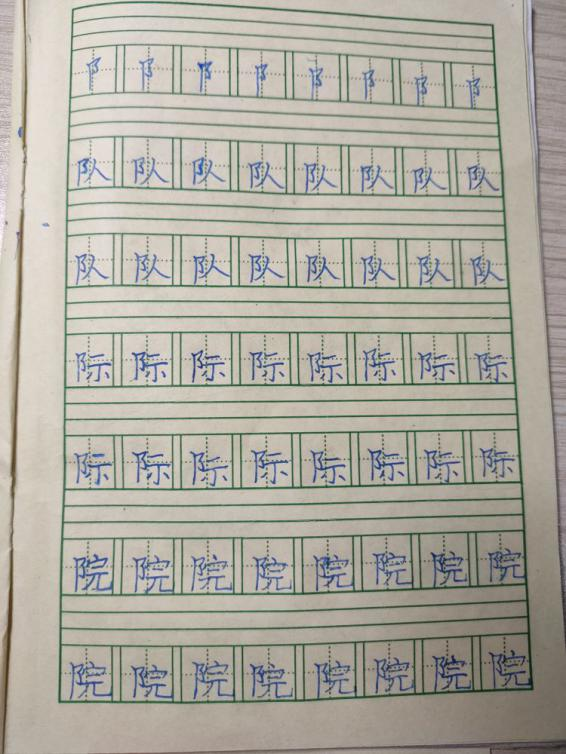 阝阝阝阝阝阝阝阝
队队队队队队队队
队队队队队队队队
际际际际际际际际
际际际际际际际际
院院院院院院院院
院院院院院院院院